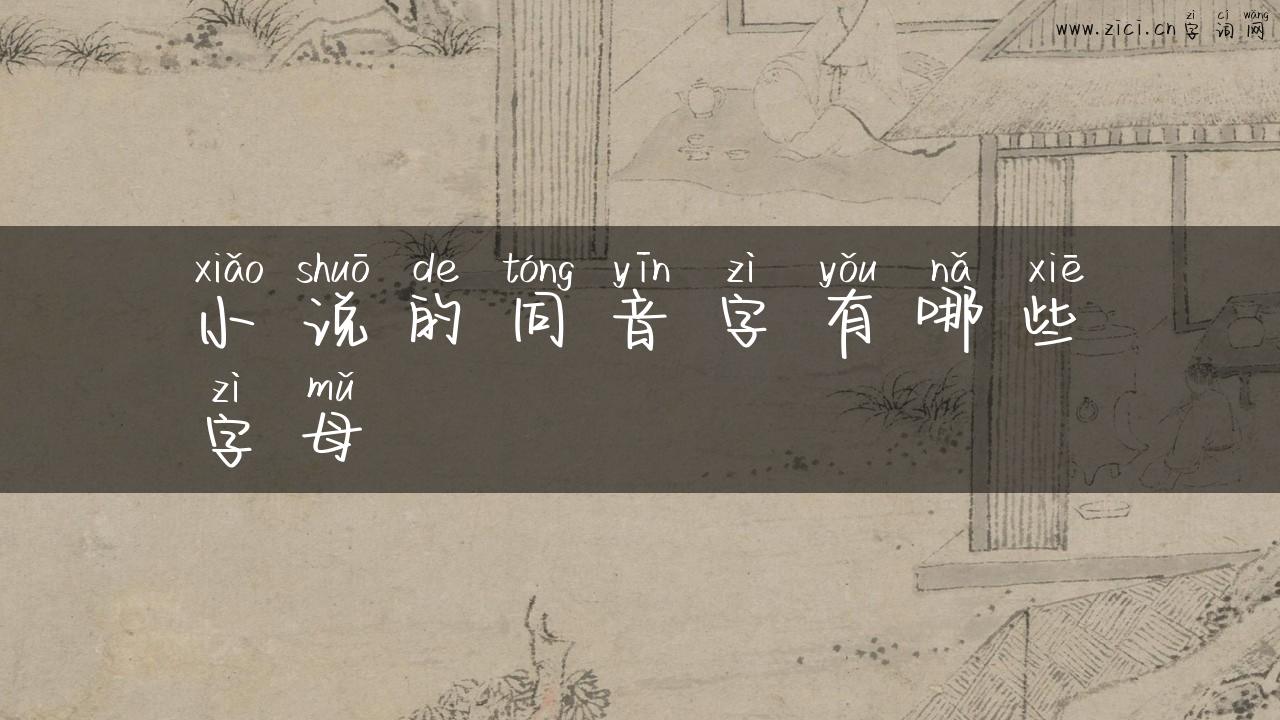 zì cí wǎng
www.zici.cn字词网
xiǎo shuō de tóng yīn zì yǒu nǎ xiē
小说的同音字有哪些
zì mǔ
字母